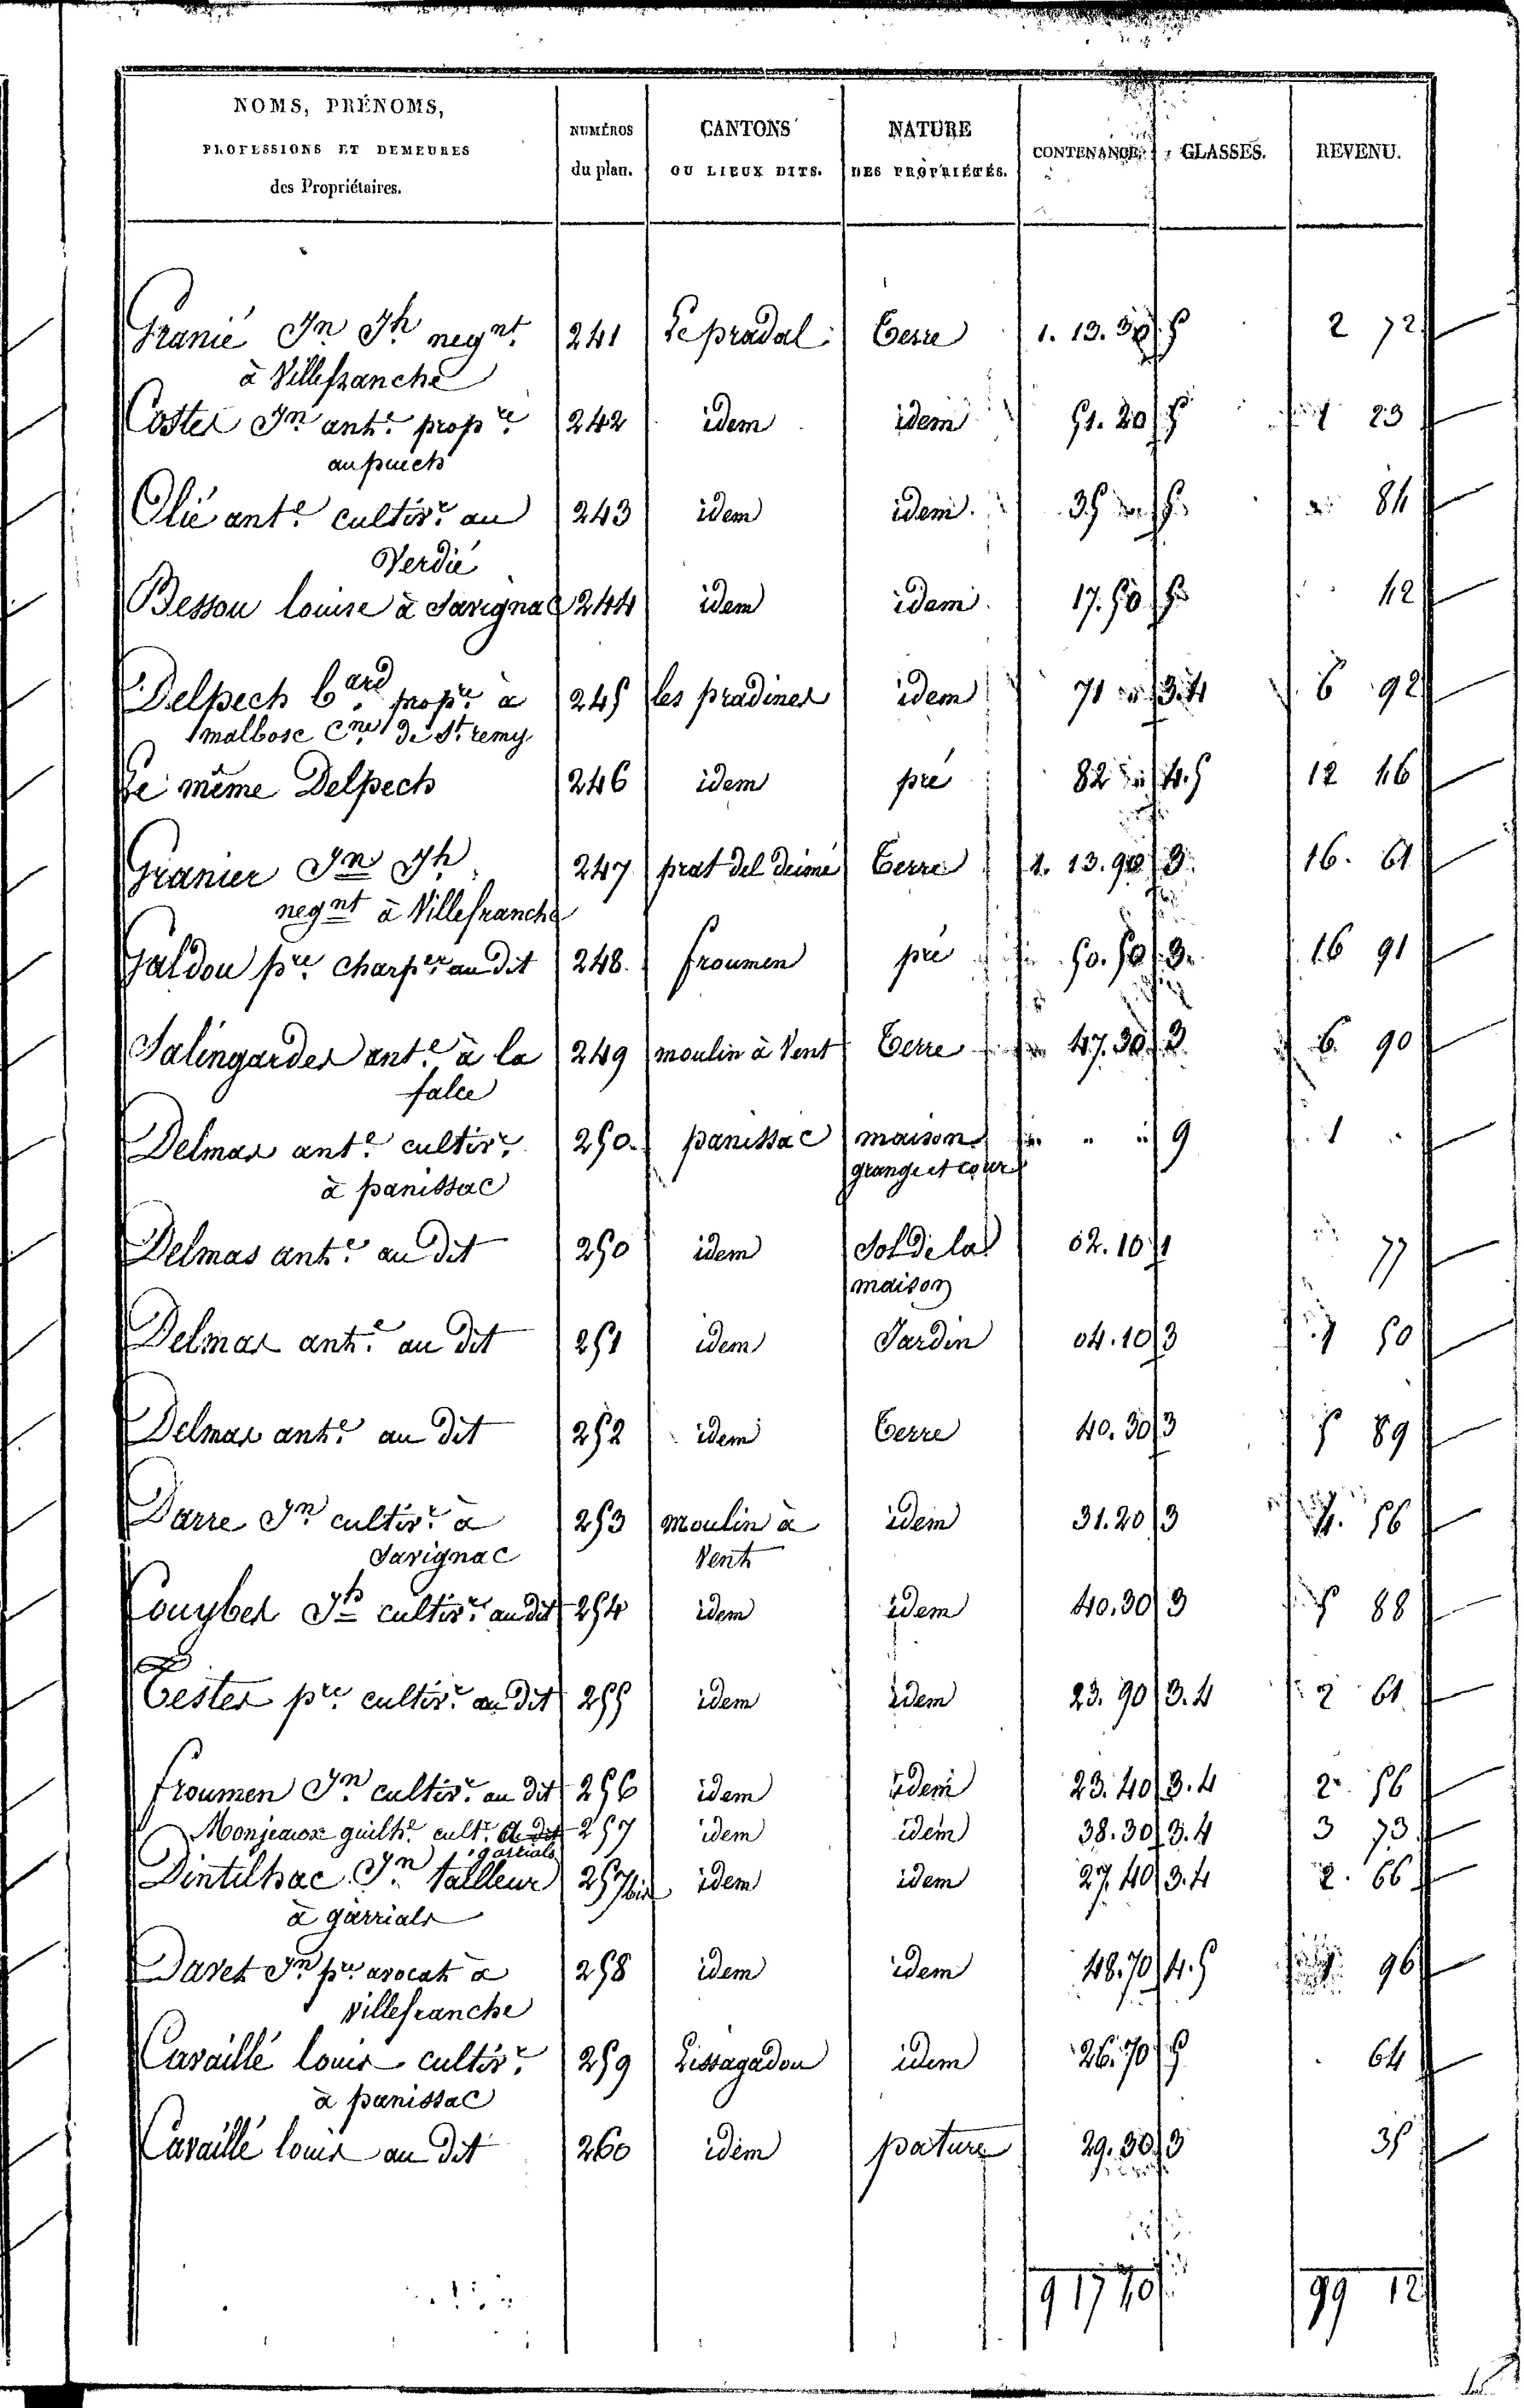 NOMS, PRÉNOMS, PROFESSIONS ET DEMEURES des Propriétaires. NUMÉROS du plan. CANTONS OU LIEUX DITS. NATURE DES PROPRIÉTÉS. CONTENANCE. CLASSES. REVENU.
Granié Jn Jh negnt. 241 Le pradal Terre 1. 13. 30 5 2 72
à Villefranche
Costes Jn ante propre 242 idem idem 51. 20 5 1 23
au puech
Olié ante cultivr au 243 idem idem 35 " 5 84
Verdié
Bessou louise à Savignac 244 idem idem 17. 50 5 42
Delpech bard propre à 245 les pradines idem 71 " 3.4 6 92
malbosc Cne de St. remy
Le même Delpech 246 idem pré 82 " 4.5 12 46
Granier Jn Jh 247 prat del deimé Terre 1. 13. 90 3 16. 61
negnt à Villefranche
Galdou pre charper au dit 248. froumen pré 50. 50 3. 16 91
Salingardes ante à la 249 moulin à Vent Terre 47. 30 3 6 90
falce
Delmas ante cultivr 250. panissac maison " " " 9 1 "
à panissac grange et cour
Delmas ante au dit 250 idem Sol de la 02. 10 1 77
maison
Delmas ante au dit 251 idem Jardin 04. 10 3 1 50
Delmas ante au dit 252 idem Terre 40. 30 3 5 89
Darre Jn cultivr à 253 moulin à idem 31. 20 3 4. 56
Savignac Vent
Couybes Jh cultivr au dit 254 idem idem 40. 30 3 5 88
Testes pre cultivr au dit 255 idem idem 23. 90 3.4 2 61
froumen Jn cultivr au dit 256 idem idem 23. 40 3.4 2. 56
Monjeaux guilhe cultr 257 idem idem 38. 30 3.4 3 73
garrials
Dintilhac Jn tailleur 257 bis idem idem 27. 40 3.4 2. 66
à garrials
Davet Jn pre avocat à 258 idem idem 48. 70 4.5 96
Villefranche
Cavaillé louis cultivr 259 Lissagadou idem 26. 70 5 64
à panissac
Cavaillé louis au dit 260 idem pature 29. 30 3 35
9 17 70 99 12